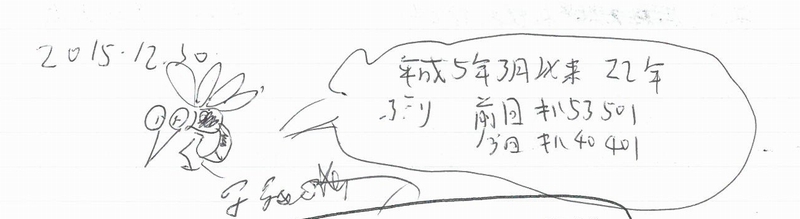 2015.12.30
平成5年3月以来 22年
ぶり 前回 キハ53 501
今回 キハ40 401